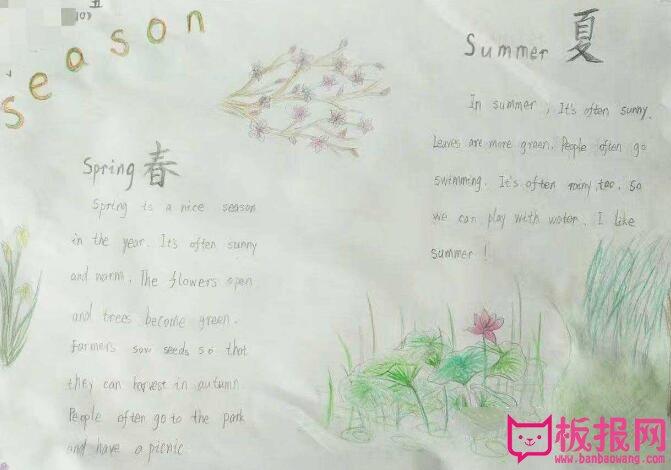 season
Spring 春
Spring is a nice season
in the year. It's often sunny
and warm. The flowers open
and trees become green.
Farmers sow seeds so that
they can harvest in autumn.
People often go to the park
and have a picnic
Summer 夏
In summer, It's often sunny.
Leaves are more green. People often go
swimming. It's often rainy too. So
we can play with water. I like
summer!
板报网
www.banbaowang.com